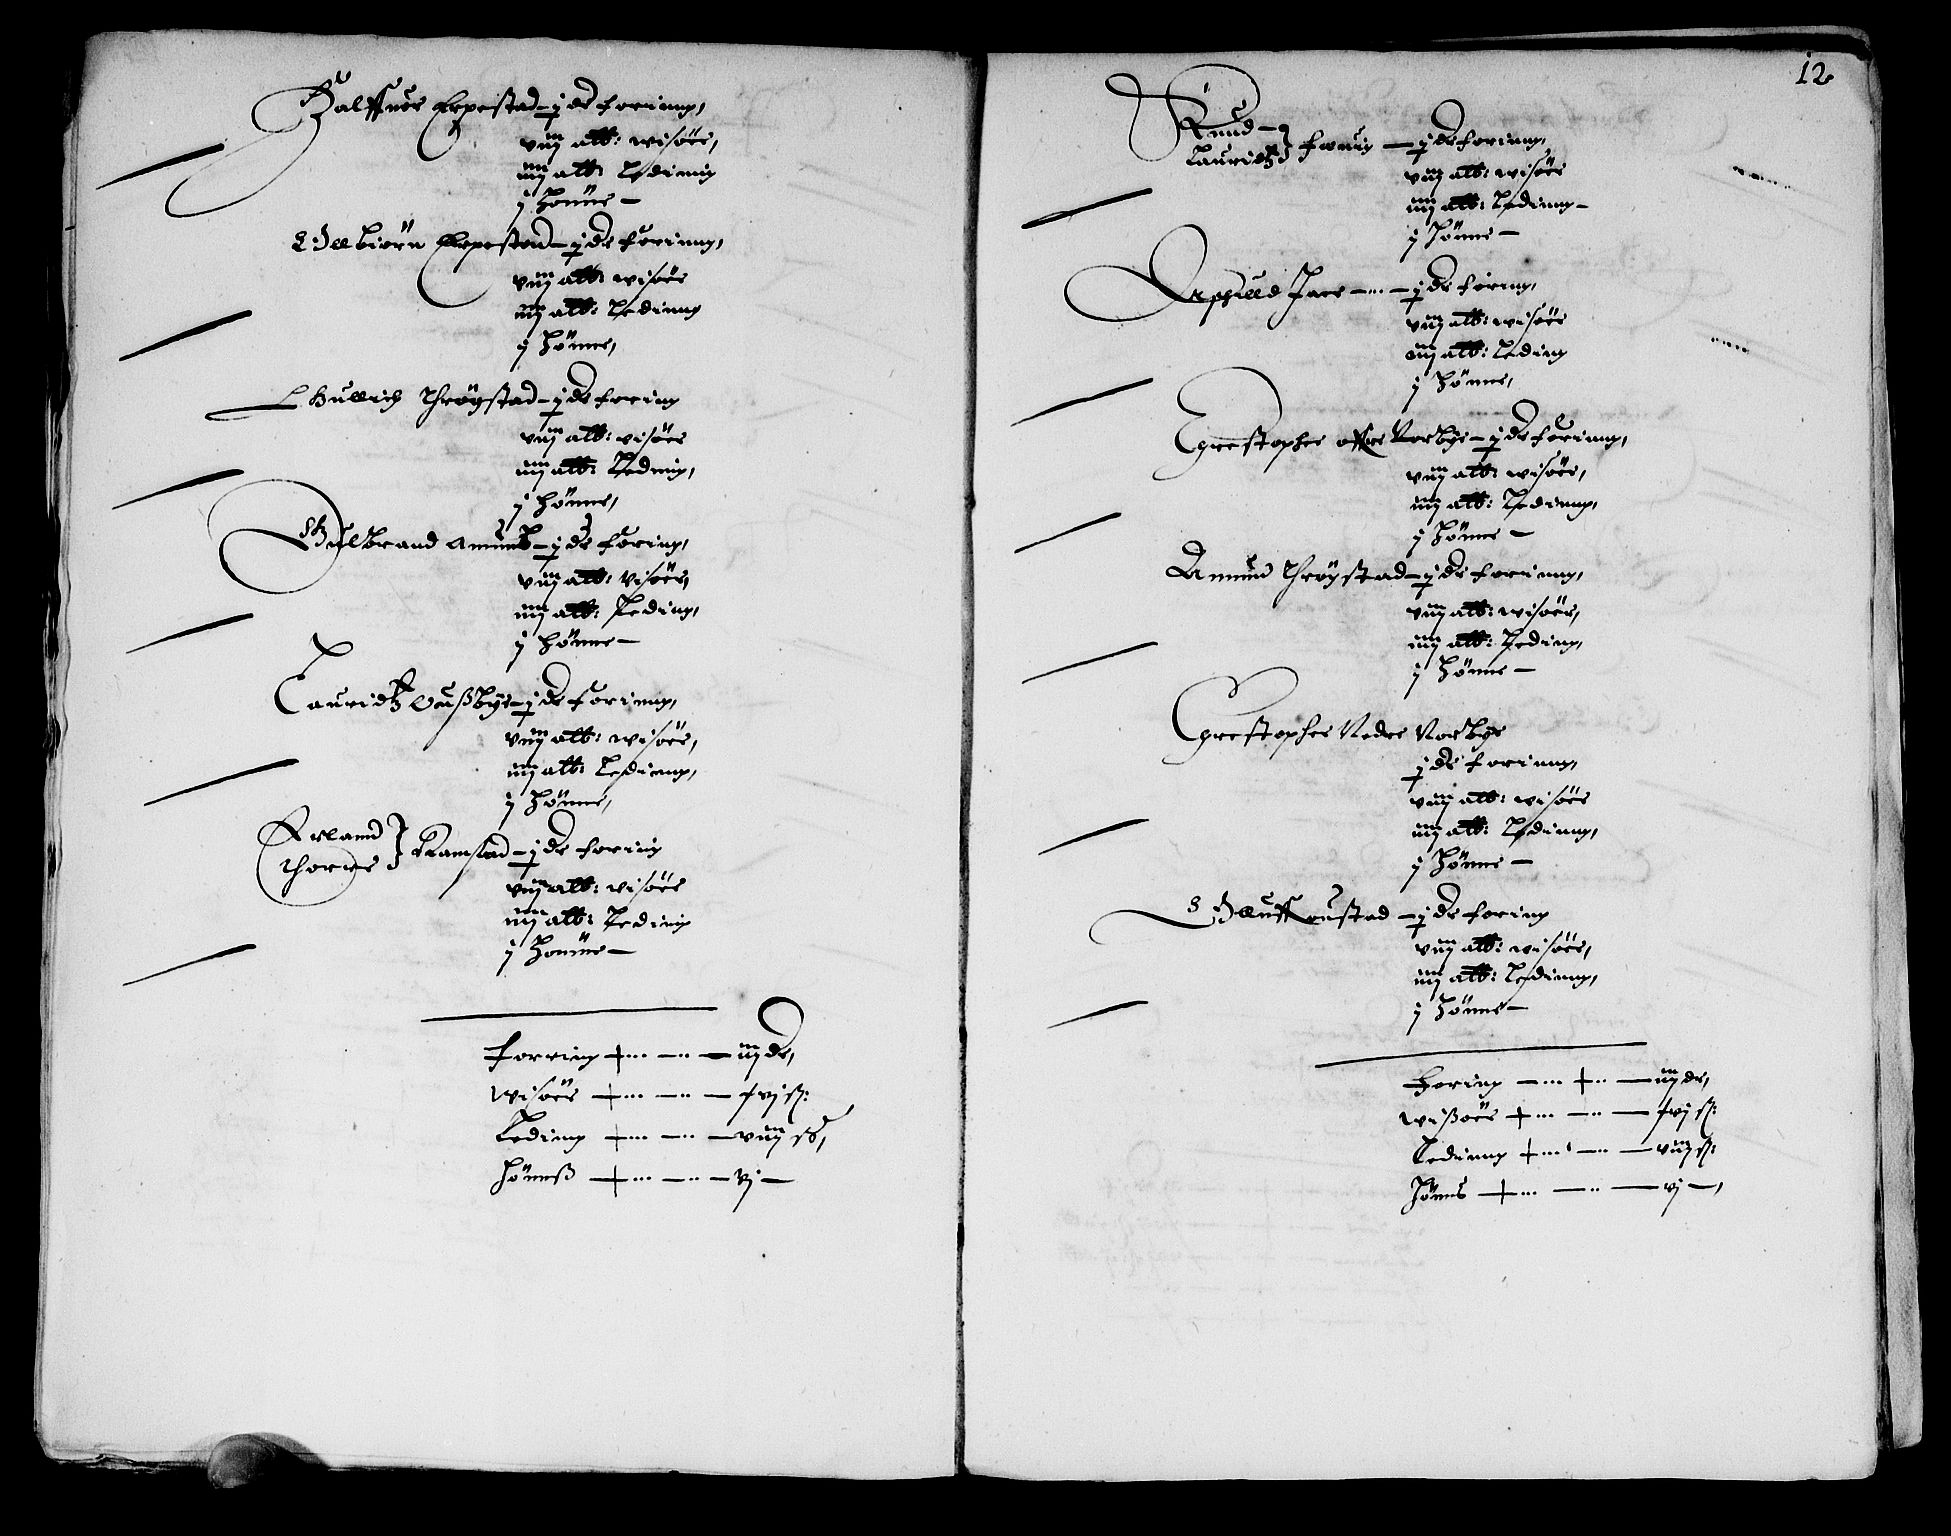 Halffuor Erpestad – j dr foring,
viij alb: wisøre,
iiij alb: Leding
j Hønne –
Elbiørn Erpestad – j dr foring,
viij alb: wisøre
iiij alb: Leding
j Hønne,
Gullich Thrøgstad – j dr foring
viij alb: visøre
iiij alb: Leding,
j Hønne,
Gulbrand Amund – j dr foring,
viij alb: visøre,
iiij alb: Leding,
j Hønne –
Lauridtz Oußbye – j dr foring,
viij alb: wisøre,
iiij alb: Leding,
j Hønne,
Erland
Thorre } Ramstad – j dr foring
viij alb: visøre
iiij alb: Leding
j Hønne –
Forring – iij dr,
Wisøre – xvj ß:
Leding – viij ß,
Hønnß – vj –
12
Knud –
Lauridtz } – j dr foring,
viij alb: wisøre
iiij alb: Leding –
j Hønne –
Jare – j dr foring,
viij alb: wisøre
iiij alb: Leding
j Hønne,
Chrestopher offre Norbye – j dr foring,
viij alb: wisøre,
iiij alb: Leding,
j Hønne –
Amund Thrøgstad – j dr foring,
viij alb: wisøre,
iiij alb: Leding,
j Hønne –
Chrestopher Nedre Norbye
j dr foring,
viij alb: wisøre
iiij alb: Leding,
j Hønne –
– j dr foring
viij alb: wisøre,
iiij alb: Leding,
j Hønne –
Foring – iij dr,
Wißøre – xvj ß:
Leding – viij ß:
Hønns – vj –,